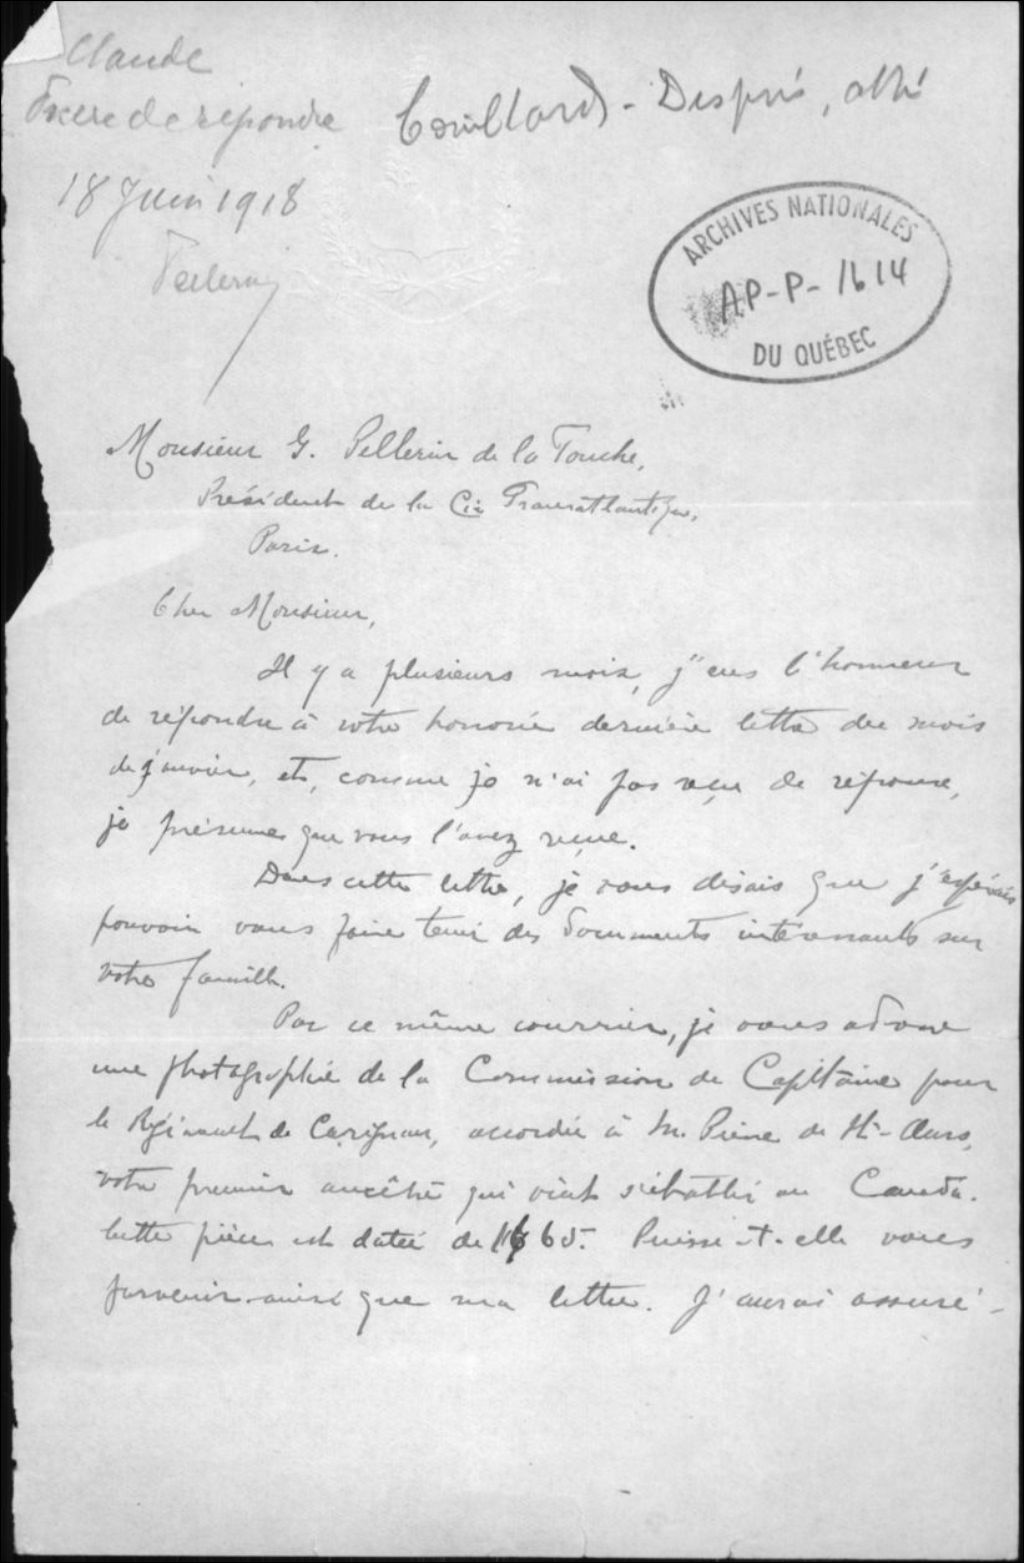 Claude
de répondre
Couillard-Després, abbé
18 Juin 1918
ARCHIVES NATIONALES
AP-P-1614
DU QUÉBEC
Monsieur G. Pellerin de la Touche,
Président de la Cie Transatlantique,
Paris.
Cher Monsieur,
Il y a plusieurs mois, j'eus l'honneur
de répondre à votre honorée dernière lettre du mois
de janvier, et, comme je n'ai pas reçu de réponse,
je présume que vous l'avez reçue.
Dans cette lettre, je vous disais que j'espérais
pouvoir vous faire tenir des documents intéressants sur
votre famille.
Par ce même courrier, je vous adresse
une photographie de la Commission de Capitaine pour
le Régiment de Carignan, accordée à M. Pierre de St-Ours,
votre premier ancêtre qui vint s'établir au Canada.
Cette pièce est datée de 1665. Puisse-t-elle vous
parvenir ainsi que ma lettre. J'aurai assuré-